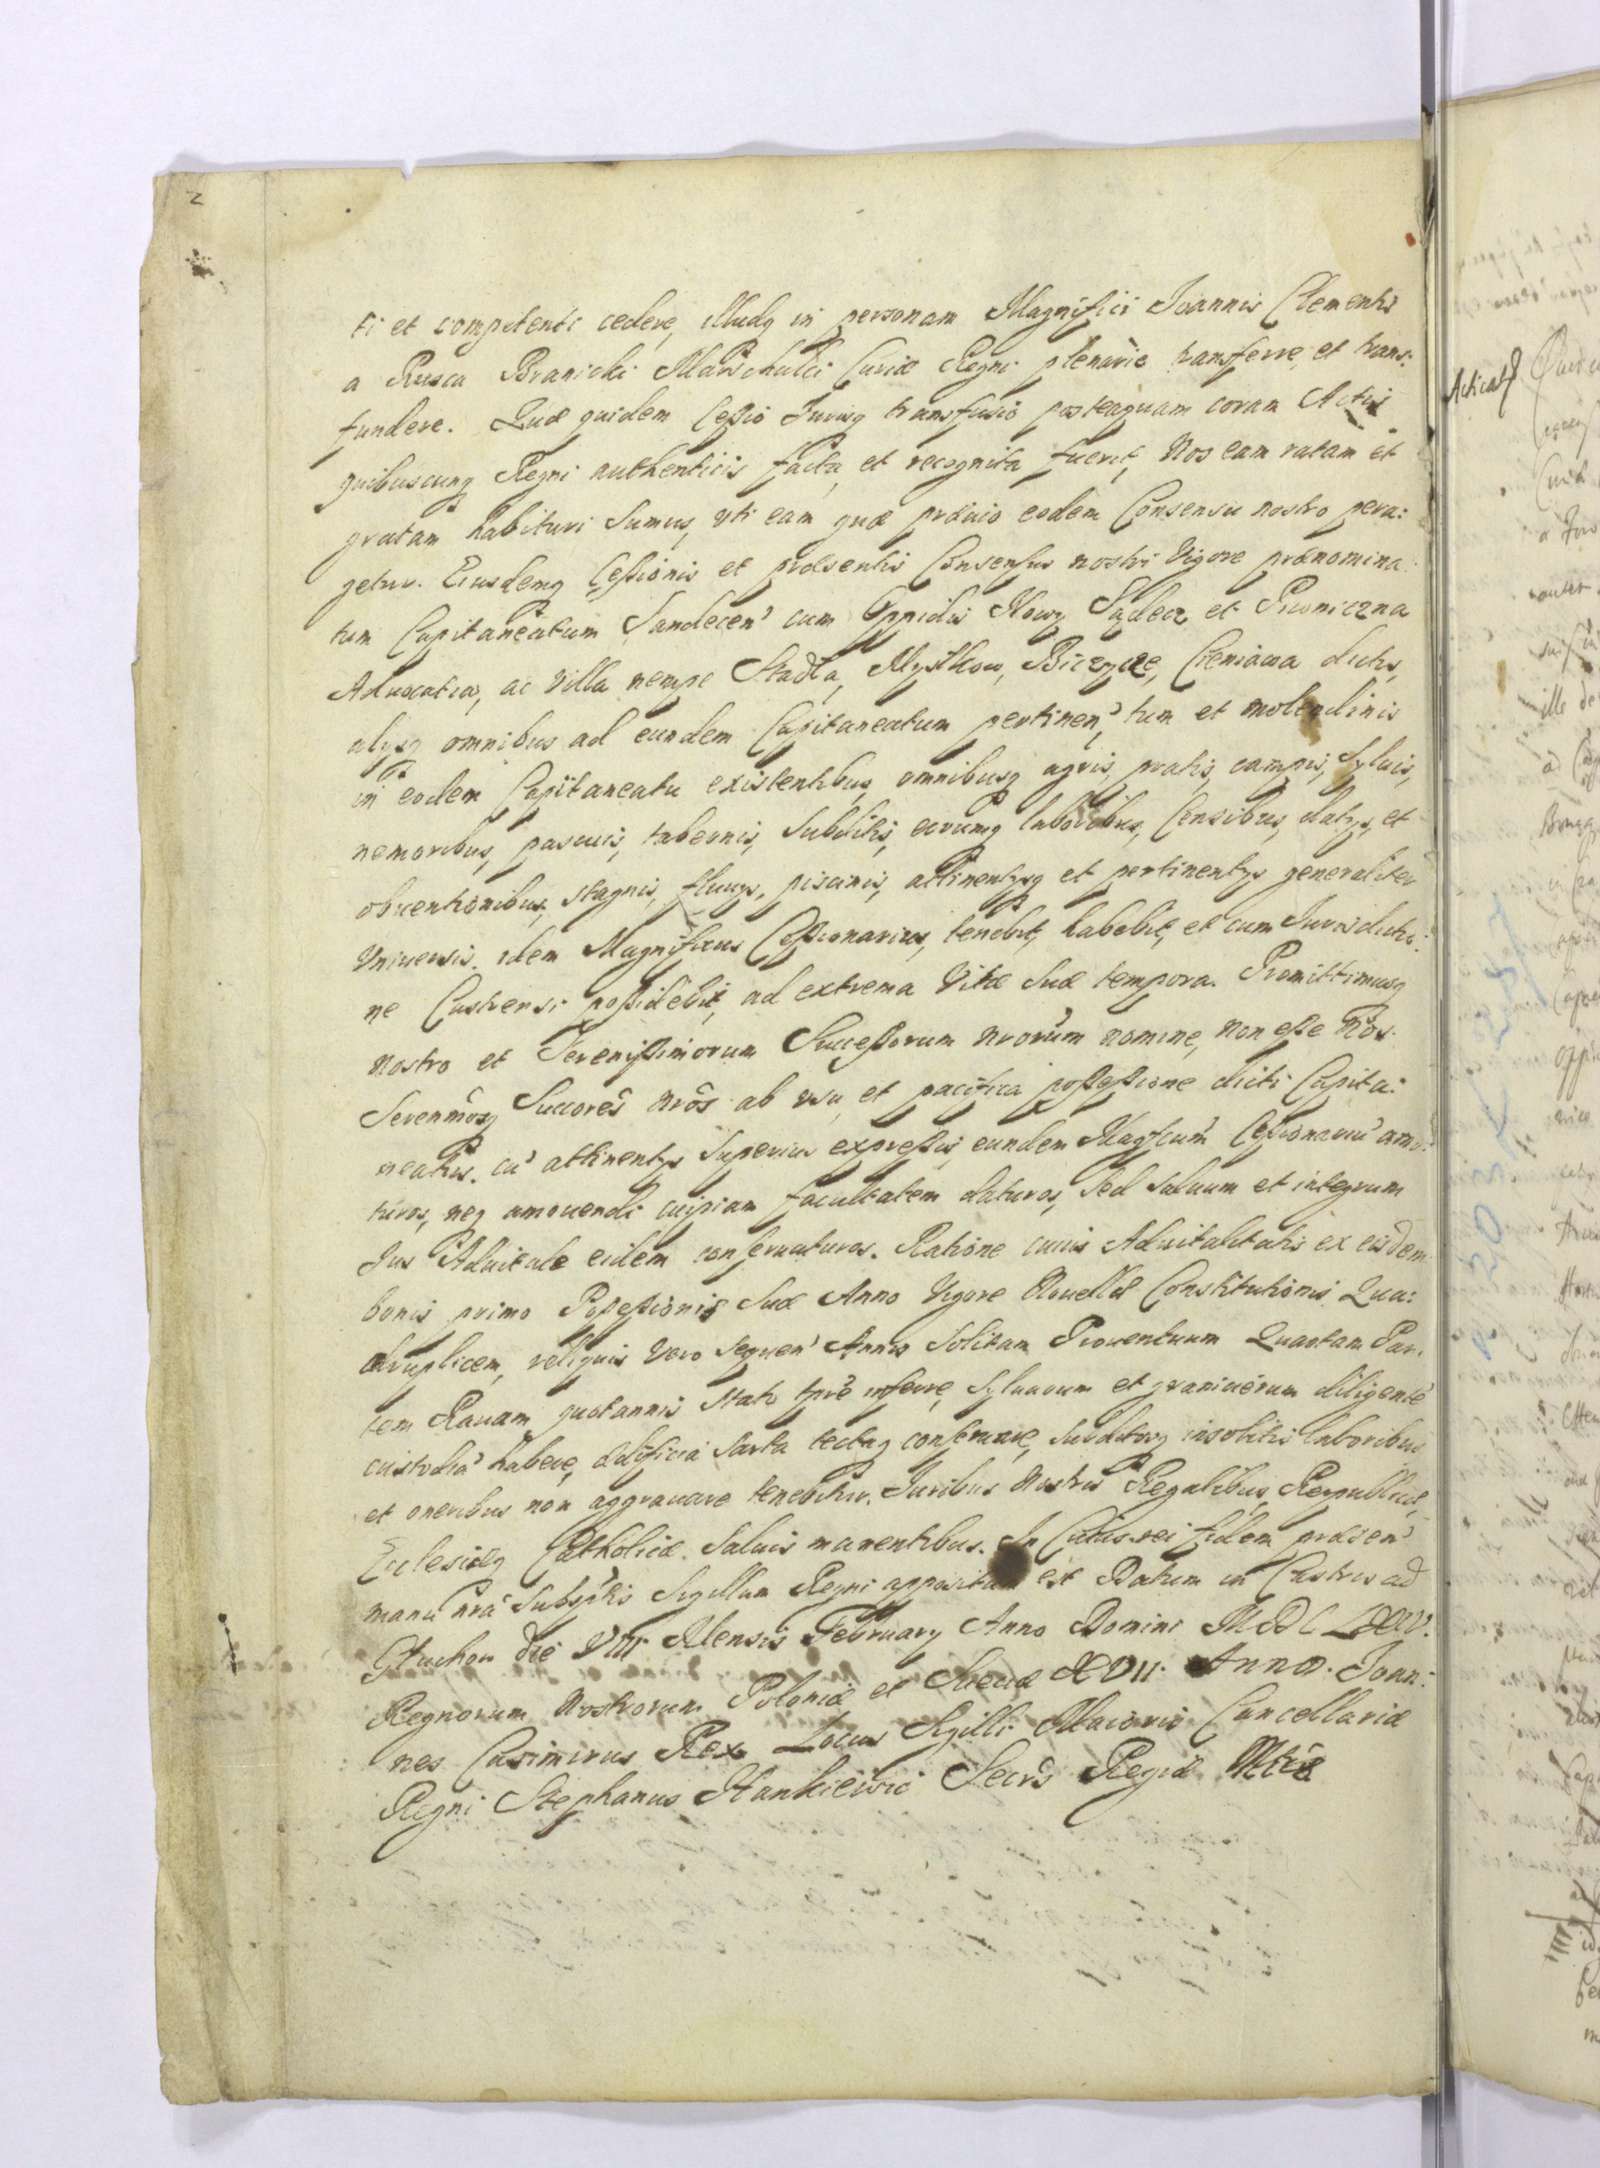 2
ti et competenti cedere, illudq in personam Magnifici Joannis Clementis
a Rusca Branicki Marschalci Curiæ Regni plenarie transferre, et trans:
fundere. Quæ quidem Cessio Jurisq transfusio posteaquam coram Actis
quibuscunq Regni authenticis facta, et recognita fuerit, Nos eam ratam et
gratam habituri sumus, uti eam quæ præuio eodem Consensu nostro pera:
getur. Eiusdemq Cessionis et præsentis Consensus nostri Vigore prænomina:
tum Capitaneatum Sandecen' cum Oppidis Nowy Sądecz et Piwniczna
Aduocatia, ac Villa nempe Stadła, Mystkow, Biczyce, Cieniawa dictis,
alysq omnibus ad eundem Capitaneatum pertinen', tum et molendinis
in eodem Capitaneatu existentibus, omnibusq agris, pratis, campis, Syluis,
nemoribus, pascuis, tabernis, Subditis, eorumq laboribus, Censibus, datys, et
obuentionibus, stagnis, fluuys, piscinis, attinentysq et pertinentys generaliter
Vniuersis. idem Magnificus Cessionarius, tenebit, habebit, et cum Jurisdictio:
ne Castrensi possidebit, ad extrema Vitæ Suæ tempora. Promittimusq
nostro et Serenissimorum Successorum nrorum nomine, non esse Nos
Serenmosq Succores nros ab usu et pacifica possessione dicti Capita:
neatus. cu' attinentys Superius expressis, eundem Magfcum Cessionariu' amo:
turos, neq amouendi cuipiam facultatem daturos, Sed Saluum et integrum
Jus Aduitale eidem conseruaturos. Ratione cuius Aduitalitatis ex eisdem
bonis primo Possessionis Suæ Anno Vigore Nouellæ Constitutionis Qua:
druplicem, reliquis Vero sequen' Annis Solitam Prouentuum Quartam Par:
tem Rauam quotannis Stato tpre inferre, Syluarum et graniucrum diligente'
custodia' habere, ædificia Sarta tectaq conseruare, Subditosq insolitis laboribus
et oneribus non aggrauare tenebitur. Juribus Nostris Regalibus, Reipublicæ,
Ecclesiæq Catholicæ. Saluis manentibus. In Cuius rei fidem præsen'
manu nra Subsptis Sigillum Regni appositum est Datum in Castris ad
Gluchow die VIII Mensis February Anno Domini MDCLXIV.
Regnorum Nostrorum Poloniæ et Sueciæ XVII. Anno. Joan:
nes Casimirus Rex Locus Sigilli Maioris Cancellariæ
Regni Stephanus Hankiewic Secrs Regiæ Mtis